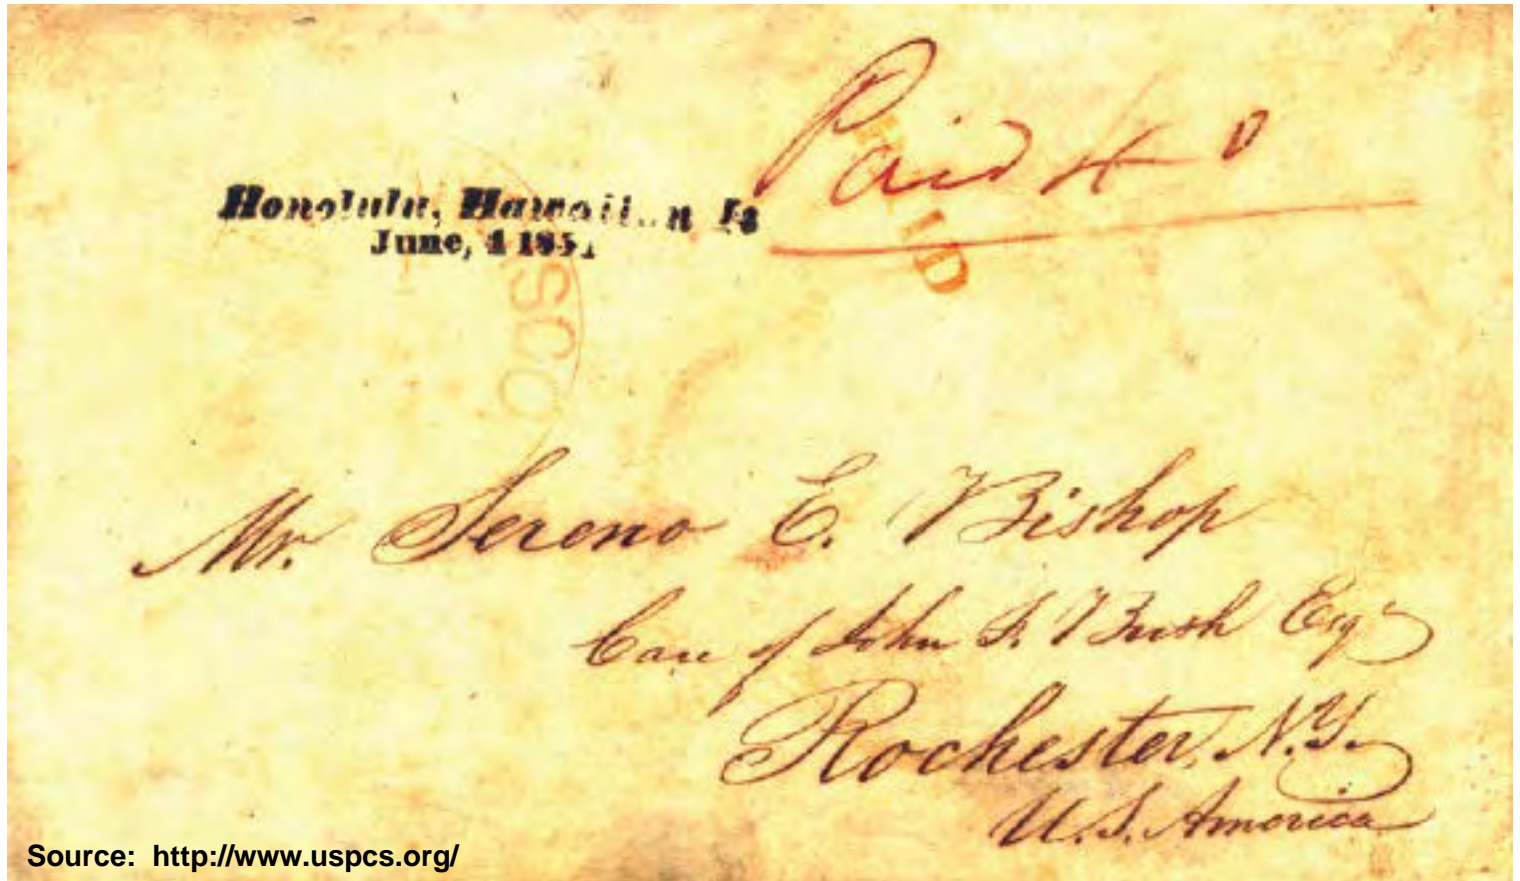 Paid 40
PAID
Honolulu, Hawaiian Is
June, 1 1851
SCO
Mr. Sereno E. Bishop
Care of John F. Bush Esqr
Rochester, N.Y.
U.S. America
Source: http://www.uspcs.org/